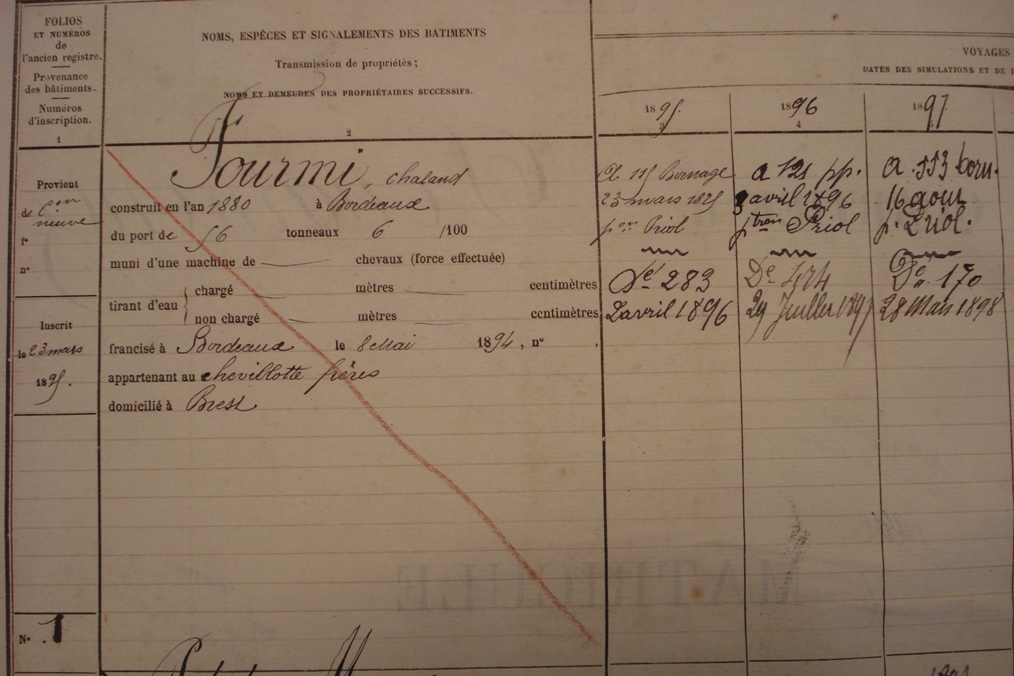 FOLIOS
ET NUMÉROS
de
l'ancien registre.
Provenance
des bâtiments.
Numéros
d'inscription.
1
NOMS, ESPÈCES ET SIGNALEMENTS DES BATIMENTS
Transmission de propriétés ;
NOMS ET DEMEURES DES PROPRIÉTAIRES SUCCESSIFS.
2
VOYAGES
DATES DES SIMULATIONS ET DE
1895.
3
1896
4
1897
Provient
de Con
neuve
fo
no
Fourmi, chaland
construit en l'an 1880 à Bordeaux
du port de 56 tonneaux 6 /100
muni d'une machine de chevaux (force effectuée)
tirant d'eau
chargé mètres centimètres
non chargé mètres centimètres
Inscrit
le 23 mars
1895.
francisé à Bordeaux le 8 Mai 1894, no .
appartenant au chevillotte frères
domicilié à Brest
At 115 Bornage
23 mars 1895
pon Priol
Dé 283
2 avril 1896
a 121 pp.
3 avril 1896
ptron Priol
De 474
29 Juillet 1897
a 553 born.
16 aout
p. Priol.
De 170
28 Mars 1898
No 1
MATRICULE